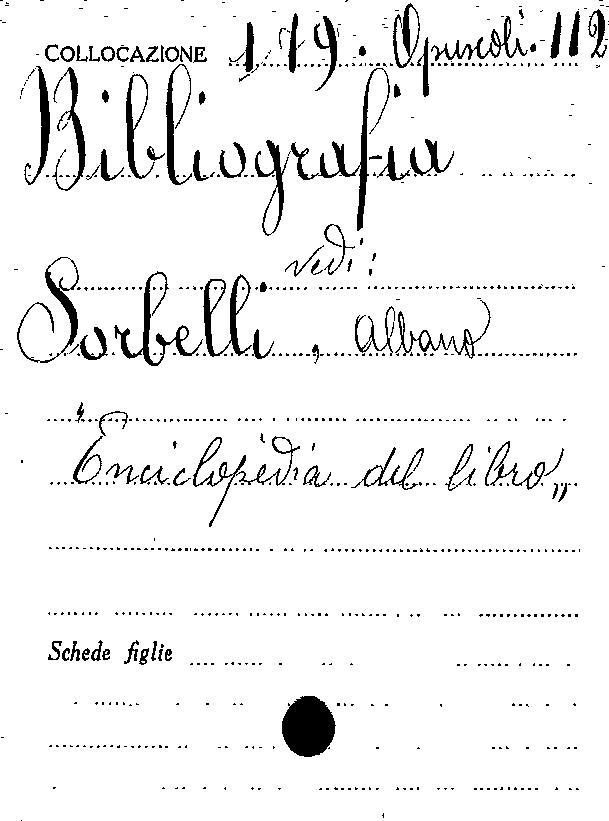 COLLOCAZIONE 179. Opuscoli. 112
Bibliografia
vedi:
Sorbelli, Albano
"Enciclopedia del libro„
Schede figlie